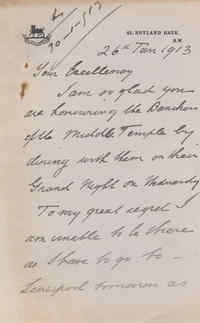 51, RUTLAND GATE,
S.W.
30-1-913
26th Jan 1913
Your Excellency
I am so glad you
are honouring the Benchers
of the Middle Temple by
dining with them on their
Grand Night on Wednesday
To my great regret I
am unable to be there
as I have to go to
Liverpool tomorrow as